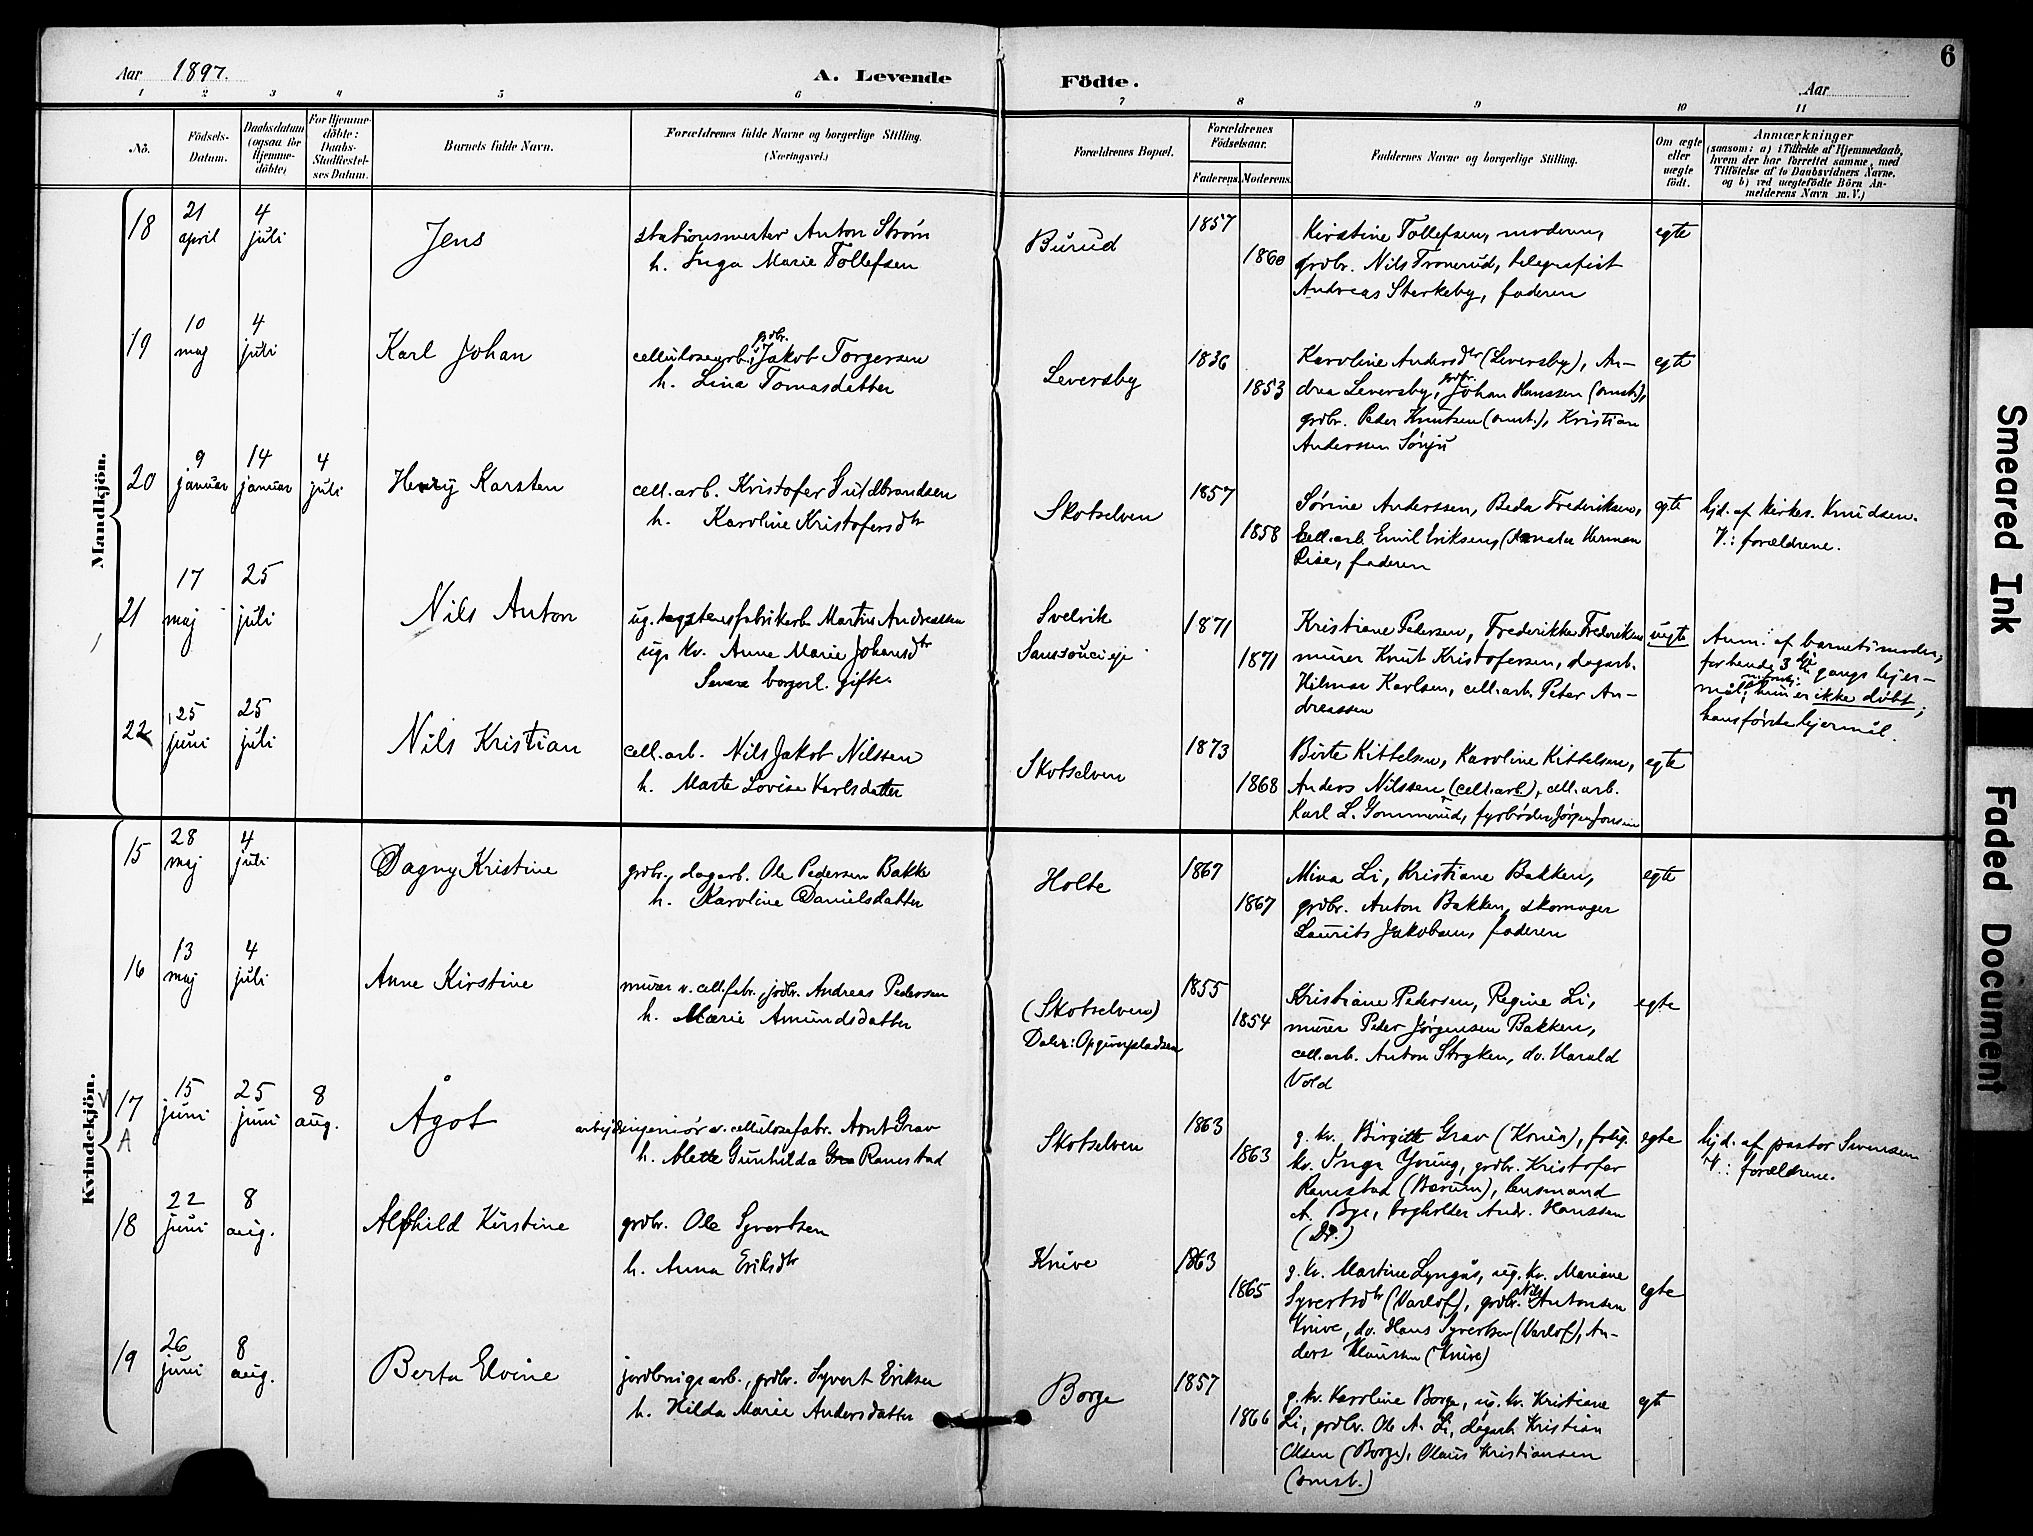 6
Aar 1897. A. Levende Födte. Aar
1 2 3 4 5 6 7 8 9 10 11
No.
Födsels-
Datum.
Daabsdatum
(ogsaa for
Hjemme-
döbte)
For Hjemme-
döbte:
Daabs-
Stadfæstel-
ses Datum.
Barnets fulde Navn.
Forældrenes fulde Navne og borgerlige Stilling.
(Næringsvei.)
Forældrenes Bopæl.
Forældrenes
Födselsaar.
Faderens. Moderens.
Faddernes Navne og borgerlige Stilling.
Om ægte
eller
uægte
födt.
Anmærkninger
(saasom: a) i Tilfælde af Hjemmedaab,
hvem der har forrettet samme, med
Tilföielse af to Daabsvidners Navne.
og b) ved uægtefödte Börn An-
melderens Navn m. V.)
Mandkjön.
18
21
april
4
juli
Jens
stationsmester Anton Strøm
h. Inga Marie Tollefsen
Burud
1857
1860
Kirstine Tollefsen, moderen,
grdbr. Nils Tronerud, telegrafist
Andreas Sterkeby, faderen
egte
19
10
maj
4
juli
Karl Johan
grdbr.
cellulosearb., Jakob Torgersen
h. Lina Tomasdatter
Leversby
1836
1853
Karoline Andersdtr (Leversby), An-
drea Leversby, grdbr. Johan Hanssen (omst.),
grdbr. Peder Knutsen (omst.), Kristian
Anderssen Sønju
egte
20
9
januar
14
januar
4
juli
Henry Karsten
cell.arb. Kristofer Guldbrandsen
h. Karoline Kristofersdtr
Skotselven
1857
1858
Sørine Anderssen, Beda Frederiksen,
cell.arb. Emil Eriksen, Herman
faderen
egte
hjd. af kirkes. Knudsen.
V.: forældrene.
21
17
maj
25
juli
Nils Anton
ug. fabrikarb. Martin Andreassen
ug. kv. Anne Marie Johansdtr
Senere borgerl. gifte.
Svelvik
Sanssouci eje
1871
1871
Kristiane Pedersen, Frederikke Frederiksen
murer Knut Kristofersen, dagarb.
Hilmar Karlsen, cell.arb. Peter An-
dreassen
uegte
Anm. af barnets moder,
for hende 3die gangs lejer-
mål; hun er ikke døbt;
hans første lejermål.
22
25
juni
25
juli
Nils Kristian
cell.arb. Nils Jakob Nilssen
h. Marte Lovise Karlsdatter
Skotselven
1873
1868
Birte Kittelsen, Karoline Kittelsen,
Anders Nilssen (cell.arb.), cell.arb.
Karl L. Gommerud, fyrbøder Jørgen Jonsen
egte
Kvindekjön.
15
28
maj
4
juli
Dagny Kristine
grdbr., dagarb. Ole Pedersen Bakke
h. Karoline Danielsdatter
Holte
1867
1867
Mina Li, Kristiane Bakken,
grdbr. Anton Bakken, skomager
Laurits Jakobsen, faderen
egte
16
13
maj
4
juli
Anne Kirstine
murer v. cell.fabr., jrdbr. Andreas Pedersen
h. Marie Amundsdatter
(Skotselven)
1855
1854
Kristiane Pedersen, Regine Li,
murer Peder Jørgensen Bakken,
cell.arb. Anton Stryken, do. Harald
Vold
egte
17
A
15
juni
25
juni
8
aug.
Ågot
arbejdsingeniør v. cellulosefabr. Aont Grav
h. Mette Gunhilda Gra Ramstad
Skotselven
1863
1863
g. kv. Birgitte Grav (Knive), frøig.
kv. Inga Young, grdbr. Kristofer
Ramstad (Bærum), lensmand
A. Bye, bogholder Andr. Hanssen
(Dr.)
egte
hjd. af pastor Svensen
V.: forældrene.
18
22
juni
8
aug.
Alfhild Kirstine
grdbr. Ole Syvertsen
h. Anna Eriksdtr
Knive
1863
1865
g. kv. Martine Lyngås, ug. kv. Mariane
Syvertsdtr (Varlof), grdbr. Nils Antonsen
Knive, do. Hans Syvertsen (Varlof), An-
ders Klausen (Knive)
egte
19
26
juni
8
aug.
Berta Elvine
jordbrugsarb., grdbr. Syvert Eriksen
h. Hilda Marie Andersdatter
Borge
1857
1866
g. kv. Karoline Borge, ug. kv. Kristiane
Li, grdbr. Ole A. Li, dagarb. Kristian
Olsen (Borge), Olaus Kristiansen
(omst.)
egte
Smeared Ink
Faded Document